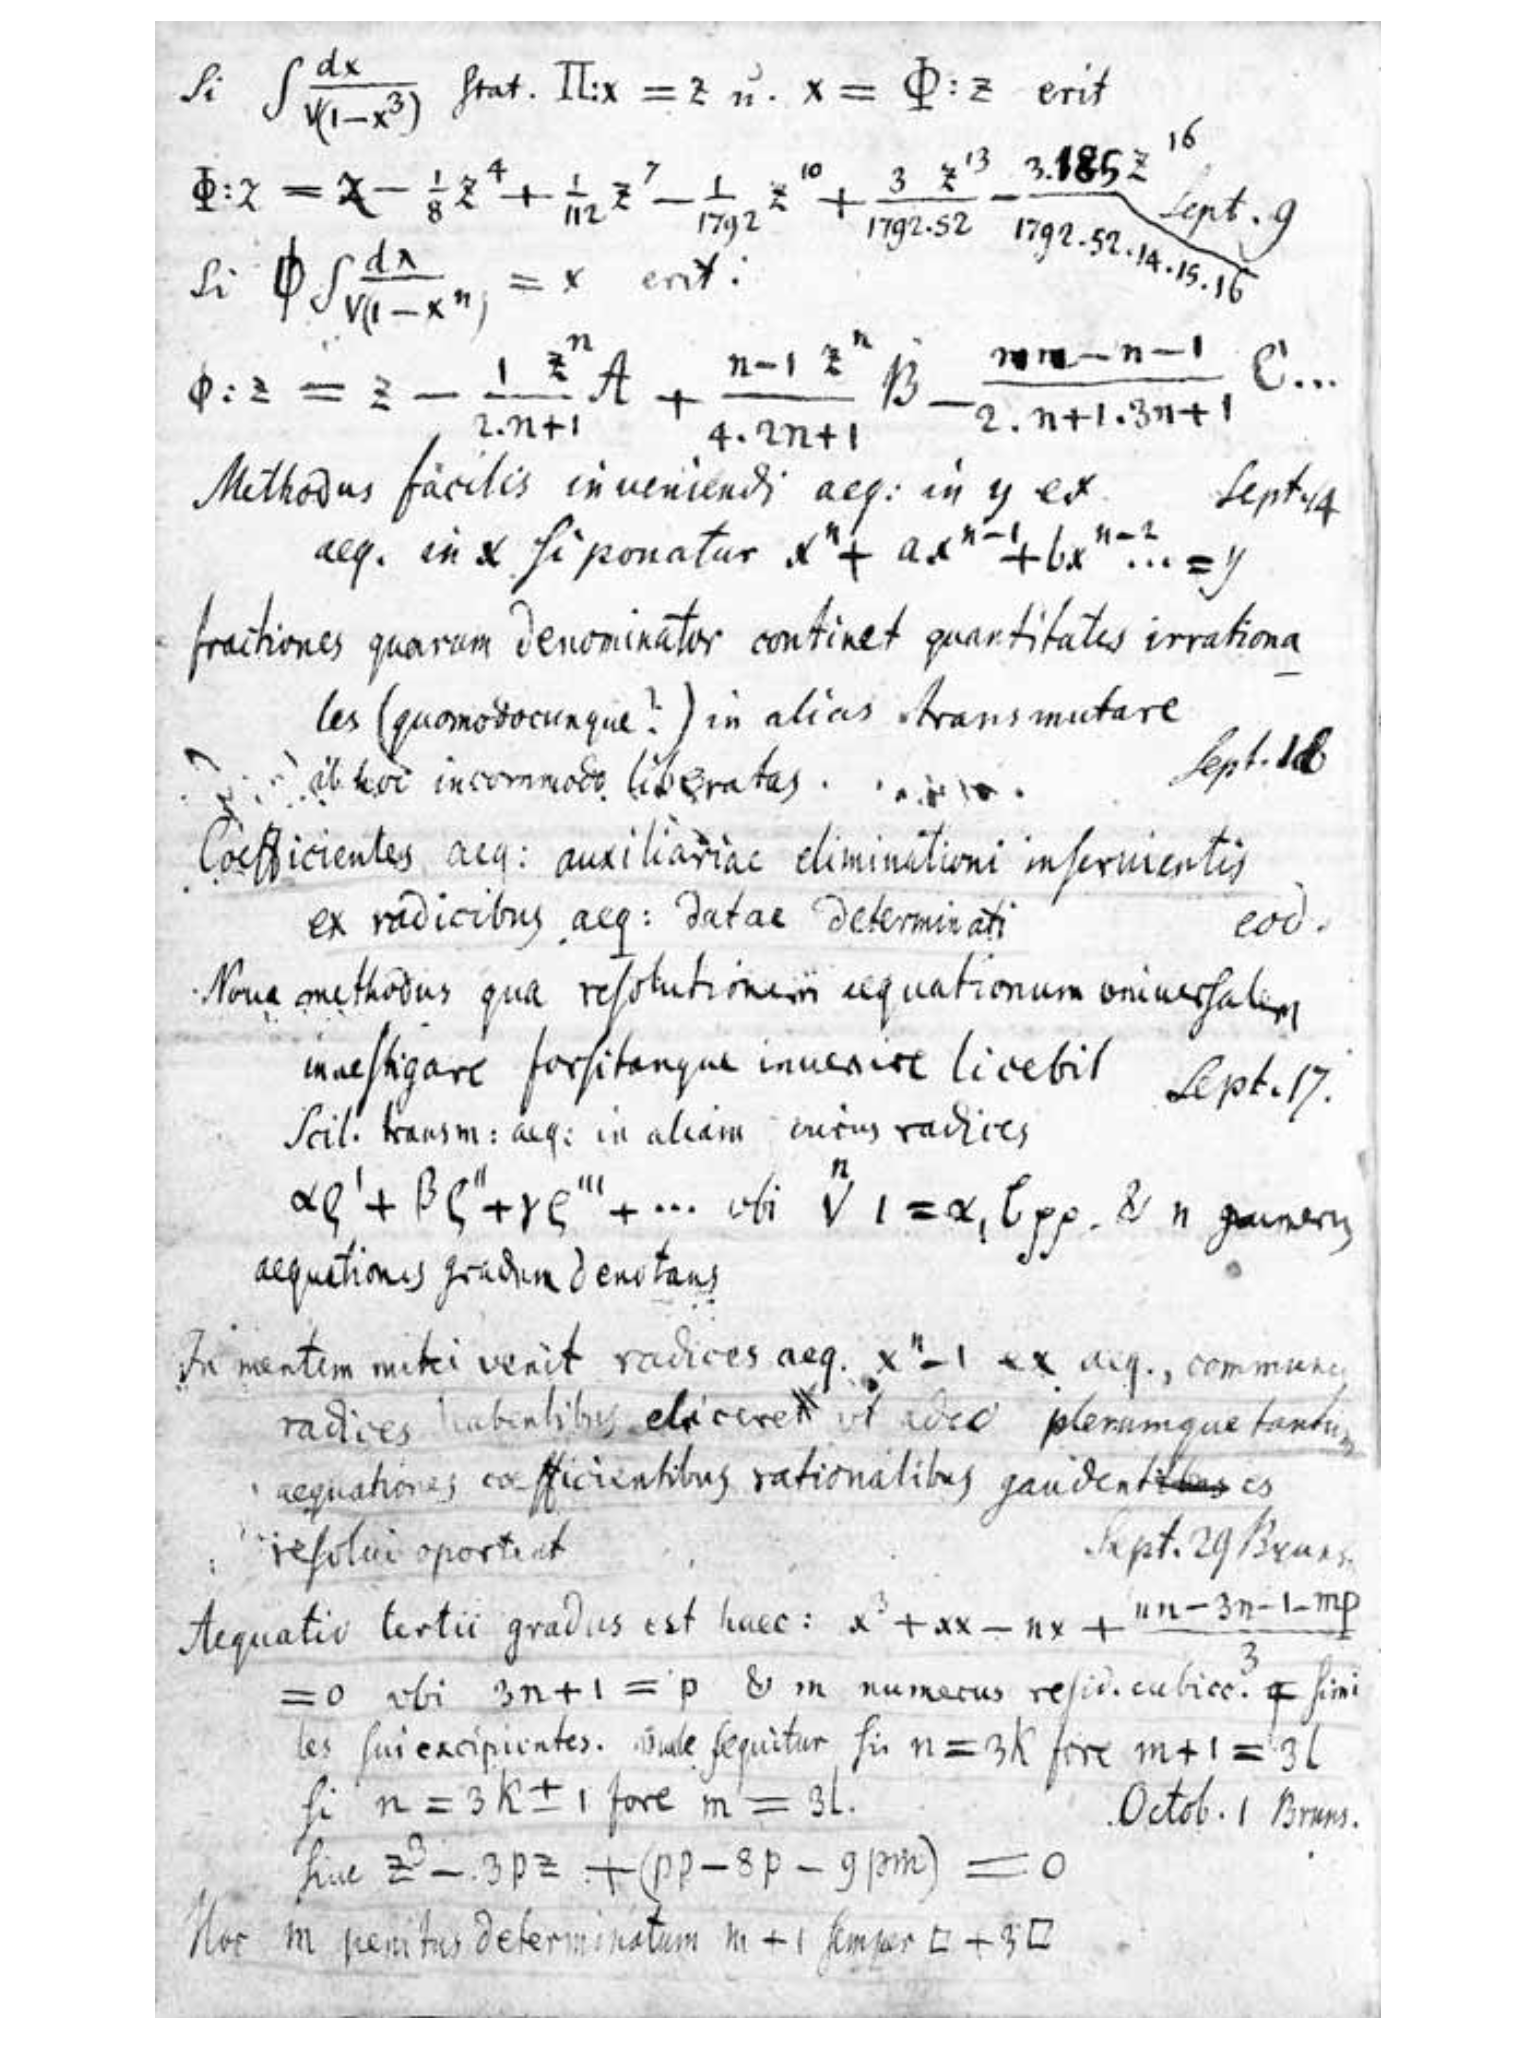 Si ∫ dx/√(1−x³) stat. Π:x = z u. x = Φ:z erit
Φ:z = z − 1/8 z⁴ + 1/112 z⁷ − 1/1792 z¹⁰ + 3 z¹³/1792.52 − 3.185 z¹⁶/1792.52.14.15.16 Sept. 9
Si Φ∫ dx/√(1−xⁿ) = x erit:
Φ:z = z − 1 zⁿ/2.n+1 A + n−1 zⁿ/4.2n+1 B − nn−n−1/2.n+1.3n+1 C...
Methodus facilis inveniendi aeq: in y ex Sept. 14
aeq. in x si ponatur xⁿ + axⁿ⁻¹ + bxⁿ⁻² ... = y
fractiones quarum denominator continet quantitates irrationa
les (quomodocunque?) in alias transmutare
ab hoc incommodo liberatas. Sept. 16
Coefficientes aeq: auxiliariae eliminationi inservientis
ex radicibus aeq: datae determinati eod.
Nova methodus qua resolutionem aequationum universalem
investigare forsitanque invenire licebit Sept. 17.
Scil. transm: aeq: in aliam cuius radices
αρ′ + βρ″ + γρ‴ + ... ubi ⁿ√1 = α, & n numerus
aequationis gradum denotans
In mentem mihi venit radices aeq. xⁿ−1 ex aeq., communes
radices habentibus elicere ut adeo plerumque tantum
aequationes coefficientibus rationalibus gaudentes
resolvi oporteat Sept. 29 Bruns.
Aequatio tertii gradus est haec: x³ + xx − nx + nn−3n−1−mp/3
= 0 ubi 3n+1 = p & m numerus resid. cubicc. simi
les sui excipientes. unde sequitur si n = 3k fore m+1 = 3l
si n = 3k ± 1 fore m = 3l. Octob. 1 Bruns.
sive z³ − 3pz + (pp − 8p − 9pm) = 0
Hoc m penitus determinatum m + 1 semper □ + 3□